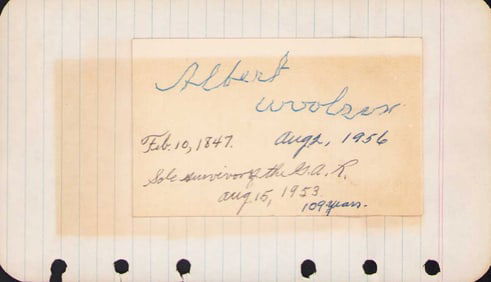 Albert
Woolson
Feb. 10, 1847. Aug 2, 1956
Sole survivor of the G.A.R.
Aug 15, 1953
109 years.